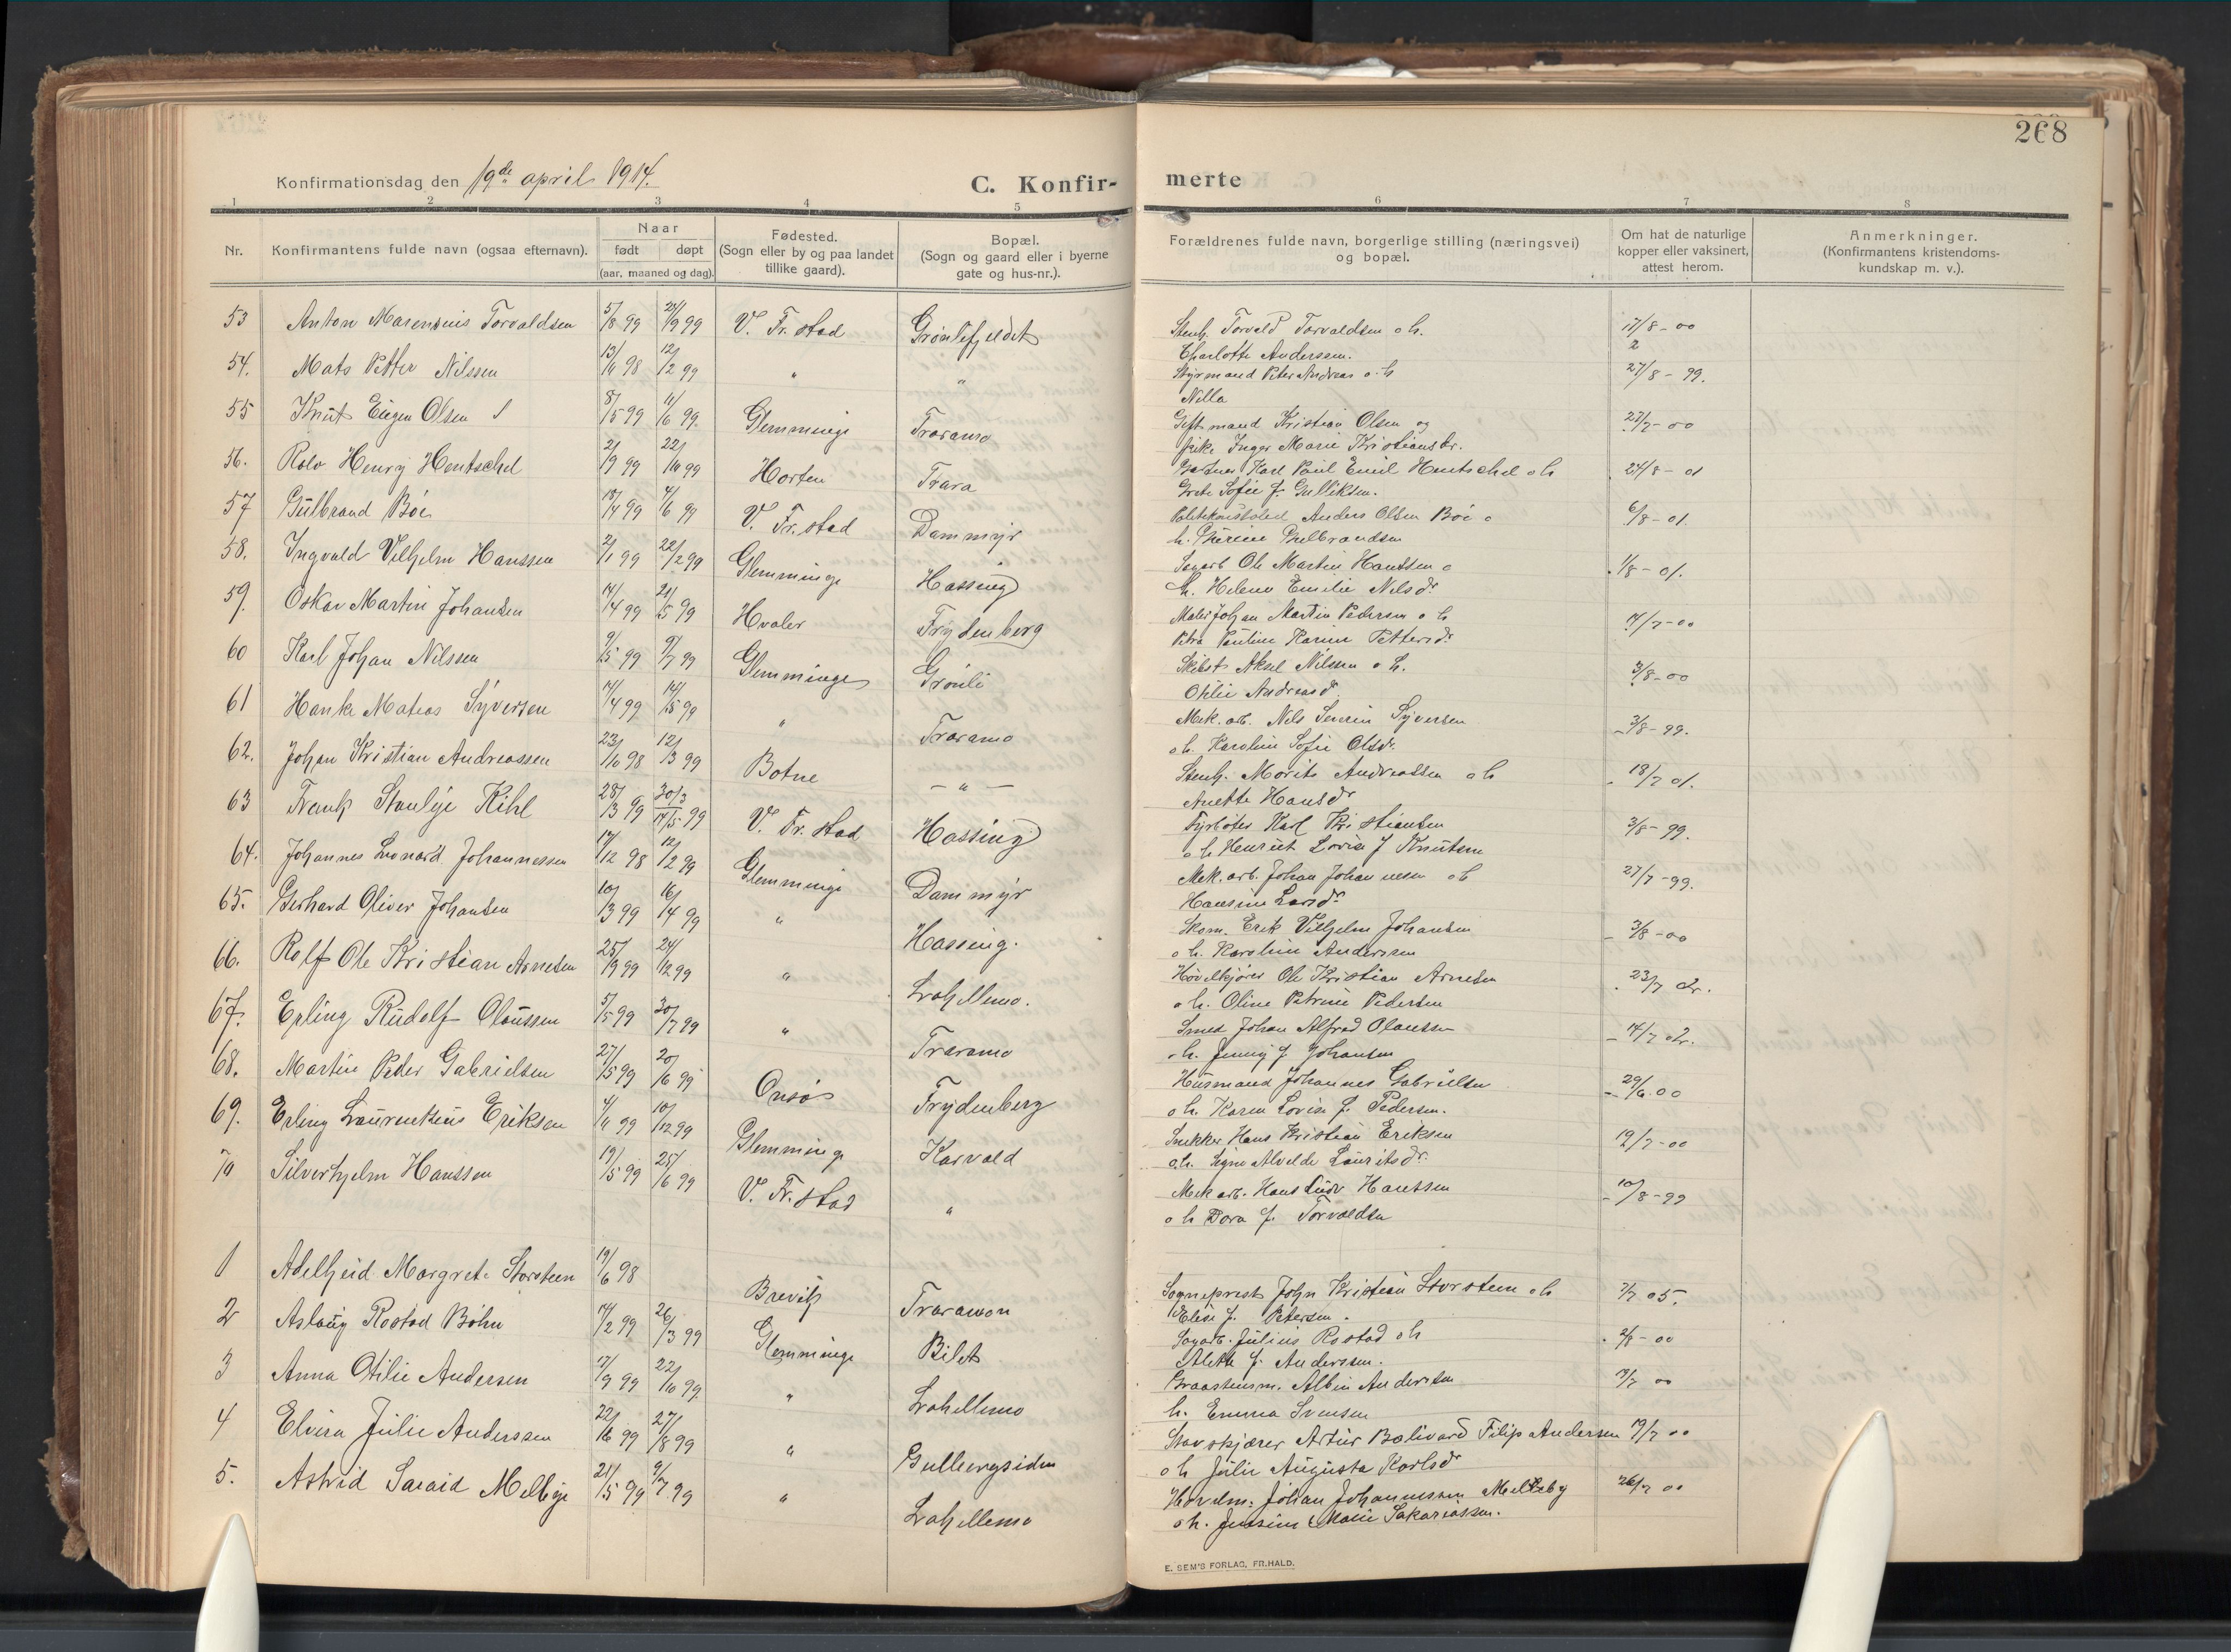 268
Konfirmationsdag den 19de april 1914.
C. Konfir-
merte
1 2 3 4 5 6 7 8
Nr.
Konfirmantens fulde navn (ogsaa efternavn).
Naar
født døpt
(aar, maaned og dag).
Fødested.
(Sogn eller by og paa landet
tillike gaard).
Bopæl.
(Sogn og gaard eller i byerne
gate og hus-nr.).
Forældrenes fulde navn, borgerlige stilling (næringsvei)
og bopæl.
Om hat de naturlige
kopper eller vaksinert,
attest herom.
Anmerkninger.
(Konfirmantens kristendoms-
kundskap m. v.).
53 Anton Marensius Torvaldsen 5/8 99 24/9 99 V. Fr. stad Grønlifjeldet Stenh. Torvald Torvaldsen o h. 17/8 - 00
Charlotte Anderssen. 2
54. Mats Petter Nilssen 13/11 98 12/2 99 " " Styrmand Peter Andreas o. h 27/8 - 99.
Nilla
55 Knut Eugen Olsen 8/5 99 11/6 99. Glemminge Traramo Gift mand Kristian Olsen og 27/7 - 00
pike Inger Marie Kristiansdr.
56. Rolv Henry Hentschel 2/9 99 22/10 99 Horten Trara Gartner Karl Paul Emil Hentschel o h 24/8 - 01
Grete Sofie f. Gulliksen.
57 Gulbrand Böe 18/4 99 4/6 99 V. Fr. stad Dammyr Politikonstabel Anders Olsen Böe o 6/8 - 01.
h. Gulbrandsen
58. Ingvald Vilhelm Hanssen 2/1 99 22/2 99 Glemminge Hassing Sagarb Ole Martin Hanssen o 1/8 - 01.
h. Helene Emilie Nilsdr
59. Oskar Martin Johansen 14/4 99 21/5 99 Hvaler Frydenberg Maler Johan Martin Pedersen o h 14/7 - 00
Petra Pauline Karine Pettersdr
60 Karl Johan Nilssen 9/5 99 9/7 99 Glemminge Grønli Skibst. Aksel Nilssen o h. 3/8 - 00
Otilie Andreasdr
61 Hanke Matias Syversen 14/4 99 14/5 99 " Traramo Mek. arb. Nils Severin Syversen 3/8 - 99.
o h. Karoline Sofie Olsdr.
62. Johan Kristian Andreassen 23/10 98 12/3 99 Botne — " — Stenh. Morits Andreassen o h 18/7 01.
Anette Hansdr
63 Frank Stanleje Kihl 28/3 99 30/3 14/5 99 V. Fr. stad Hassing Fyrböter Karl Kristiansen 3/8 - 99.
o h Henriet Lovise f Knutsen
64. Johannes Leonard Johannessen 17/12 98 12/2 99 Glemminge Dammyr Mek. arb. Johan Johannesen o h 27/7 - 99.
Hansine Larsdr
65. Gerhard Oliver Johansen 10/3 99 16/4 99 " Hassing. Skom. Erik Vilhelm Johansen 3/8 - 00
o h. Karoline Anderssen
66. Rolf Ole Kristian Arnesen 25/9 99 24/12 99 " Lahellemo. Høvelkjører Ole Kristian Arnesen 23/7 02.
o h. Oline Petrine Pedersen
67. Erling Rudolf Olaussen 5/5 99 30/7 99 " Traramo Smed Johan Alfred Olaussen 14/7 02.
o h. Jenny f. Johansen
68. Martin Peder Gabrielsen 27/5 99 20/6 99 Onsø Frydenberg Husmand Johannes Gabrielsen 29/6 00
o h. Karen Lovise f. Pedersen.
69. Erling Laurentius Eriksen 4/11 99 10/12 99 Glemminge Karvald Snekker Hans Kristian Eriksen 19/7 - 00
o. h. Signe Alvilde Lauritsdr.
70 Silverhjelm Hanssen 19/5 99 25/6 99 V. Fr. stad " Mek arb. Hans Ludv Hanssen 10/8 - 99
o h Dora f. Torvaldsen
1 Adelheid Margrete Storsteen 19/6 98 Brevik Traramon Sogneprest John Kristian Storsteen o h 7/7 05.
Elise f. Petersen.
2 Aslaug Rostad Böhn 14/2 99 26/3 99 Glemminge Bilet Sagarb. Julius Rostad o h 2/8 - 00
Alette f. Anderssen.
3 Anna Otilie Andersen 17/9 99 22/10 99. " Lahellemo Graastensm. Albin Anderssen 19/7 00
h. Emma Svensen
4 Elvira Julie Anderssen 22/6 99 27/8 99 " Gullbergsiden Stavskjærer Artur Bolivard Filip Andersen 19/7 00
o h Julie Augusta Karlsdr
5. Astrid Saraid Melbye 21/5 99 9/7 99 " Lahellemo Høvelm. Johan Johannessen Melleby 26/7 00
o h. Jensine Marie Sakariassen.
E. SEM'S FORLAG, FR.HALD.